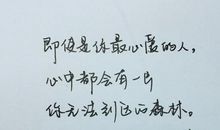 即便是你最心爱的人，
心中都会有一片
你无法到达的森林。